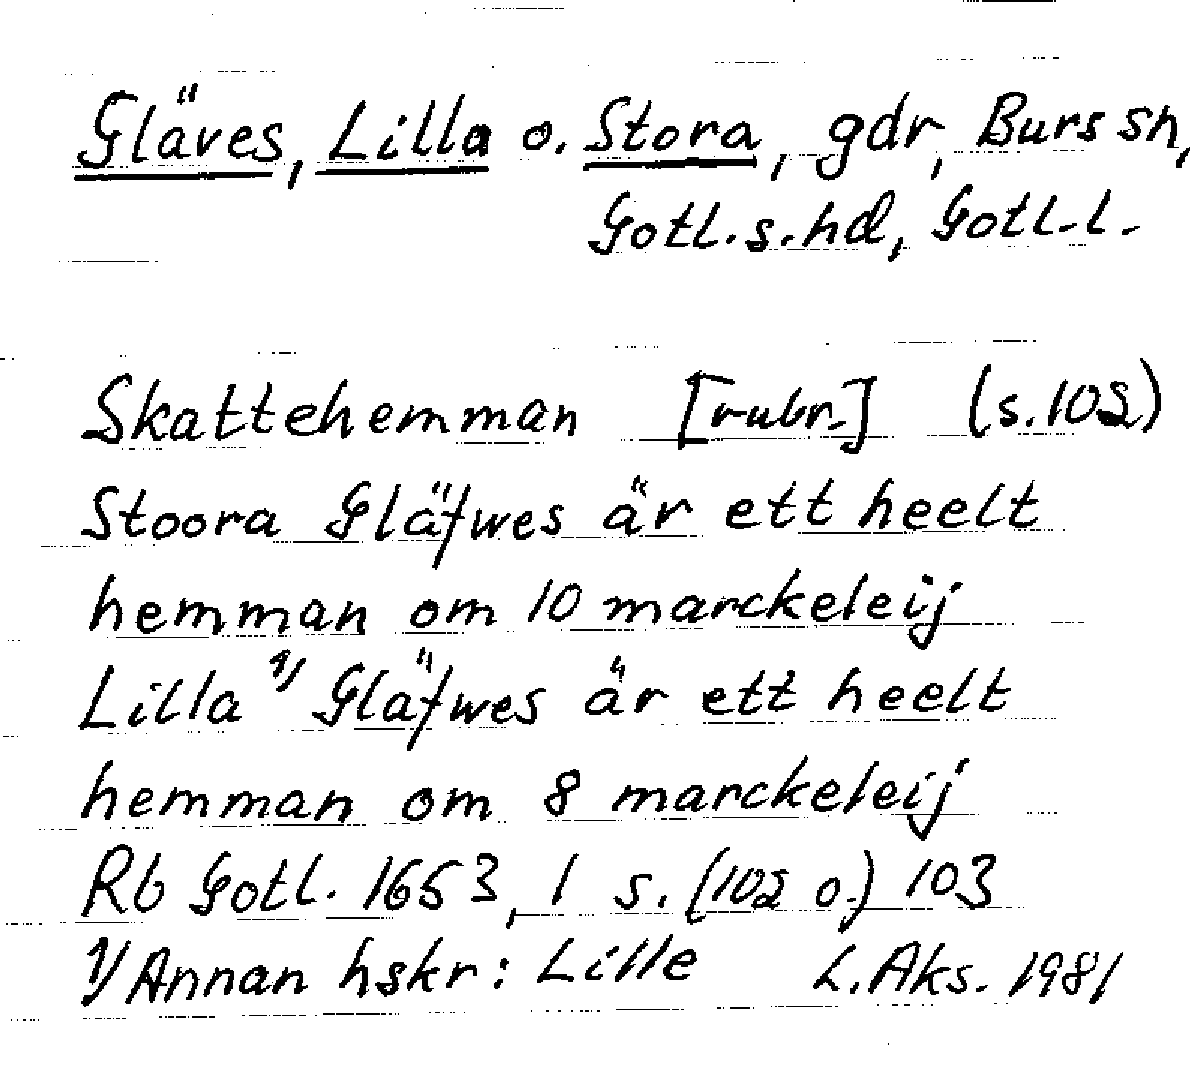 Gläves, Lilla o. Stora, gdr, Burs sn,
Gotl.s.hd, Gotl.l.
Skattehemman [rubr.] (s.102)
Stoora Gläfwes är ett heelt
hemman om 10 marckeleij
Lilla 1/ Gläfwes är ett heelt
hemman om 8 marckeleij
Rb Gotl. 1653, 1 s. (102 o.) 103
1/ Annan hskr: Lille L.Aks. 1981